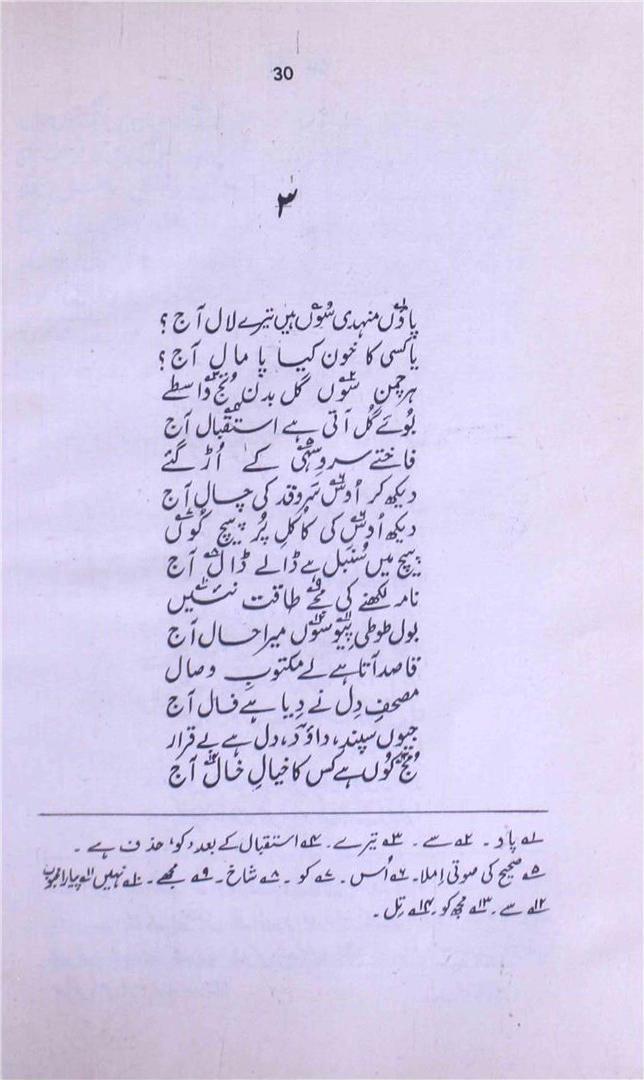 30
۳
پاوں منہدی سُوں ہیں تیرے لال آج ؟
یا کسی کا خون کیا پا مال آج ؟
ہر چمن سُوں گل بدن تُج واسطے
بوئے گُل آتی ہے استقبال آج
فاختے سروِ سہّی کے اُڑ گئے
دیکھ کر اُوس سَرو قد کی چال آج
دیکھ اُوس کی کاکلِ پُر پیچ کُوں
پیچ میں سُنبل ہے ڈالے ڈال آج
نامہ لکھنے کی مُجے طاقت نئیں
بول طوطی پِیو سُوں میرا حال آج
قاصد آتا ہے لے مکتوبِ وصال
مصحفِ دِل نے دِیا ہے فال آج
جیوں سپند، داوٗد، دل ہے بے قرار
مُج کوں ہے کس کا خیالِ خال آج
۱ پاو ۔ ۲ سے ۔ ۳ تیرے ۔ ۴ استقبال کے بعد 'کو' حذف ہے ۔
۵ صحیح کی صوتی اِملا ۔ ۶ اُس ۔ ۷ کو ۔ ۸ شاخ ۔ ۹ مجھے ۔ ۱۰ نہیں ۱۱ پیارا محبوب
۱۲ سے ۔ ۱۳ مجھ کو ۔ ۱۴ تِل ۔